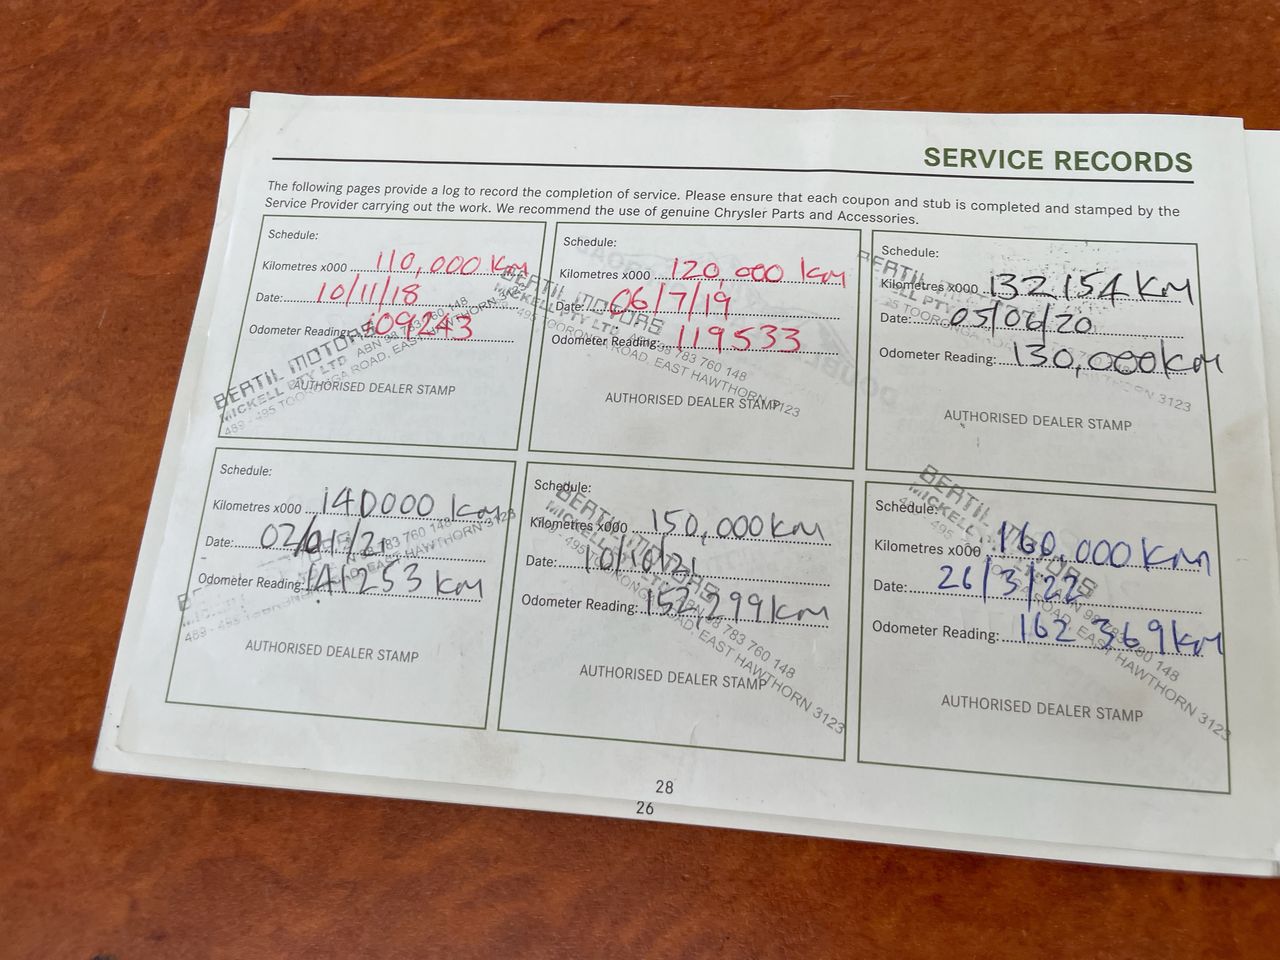 SERVICE RECORDS
The following pages provide a log to record the completion of service. Please ensure that each coupon and stub is completed and stamped by the
Service Provider carrying out the work. We recommend the use of genuine Chrysler Parts and Accessories.
Schedule:
Kilometres x000 110,000 km
Date: 10/11/18
Odometer Reading: 109243
BERTIL MOTORS
MICKELL PTY LTD. ABN 38 783 760 148
489 - 495 TOORONGA ROAD, EAST HAWTHORN 3123
AUTHORISED DEALER STAMP
Schedule:
Kilometres x000 120,000 km
Date: 06/7/19
Odometer Reading: 119533
BERTIL MOTORS
MICKELL PTY LTD. ABN 38 783 760 148
495 TOORONGA ROAD, EAST HAWTHORN 3123
AUTHORISED DEALER STAMP
Schedule:
Kilometres x000 132154 KM
Date: 05/06/20
Odometer Reading: 130,000km
BERTIL
PTY
TOORONGA HAWTHORN 3123
AUTHORISED DEALER STAMP
Schedule:
Kilometres x000 140000 km
Date: 02/01/21
Odometer Reading: 141253 KM
783 760 148
489 - 495 ROAD, EAST HAWTHORN 3123
AUTHORISED DEALER STAMP
Schedule:
Kilometres x000 150,000 KM
Date: 10/10/21
Odometer Reading: 152,299 km
BERTIL MOTORS
MICKELL PTY LTD. 38 783 760 148
489 - 495 ROAD, EAST HAWTHORN 3123
AUTHORISED DEALER STAMP
Schedule:
Kilometres x000 160,000 Km
Date: 26/3/22
Odometer Reading: 162 369 km
BERTIL MOTORS
MICKELL 148
495 ROAD, EAST HAWTHORN 3123
AUTHORISED DEALER STAMP
28
26